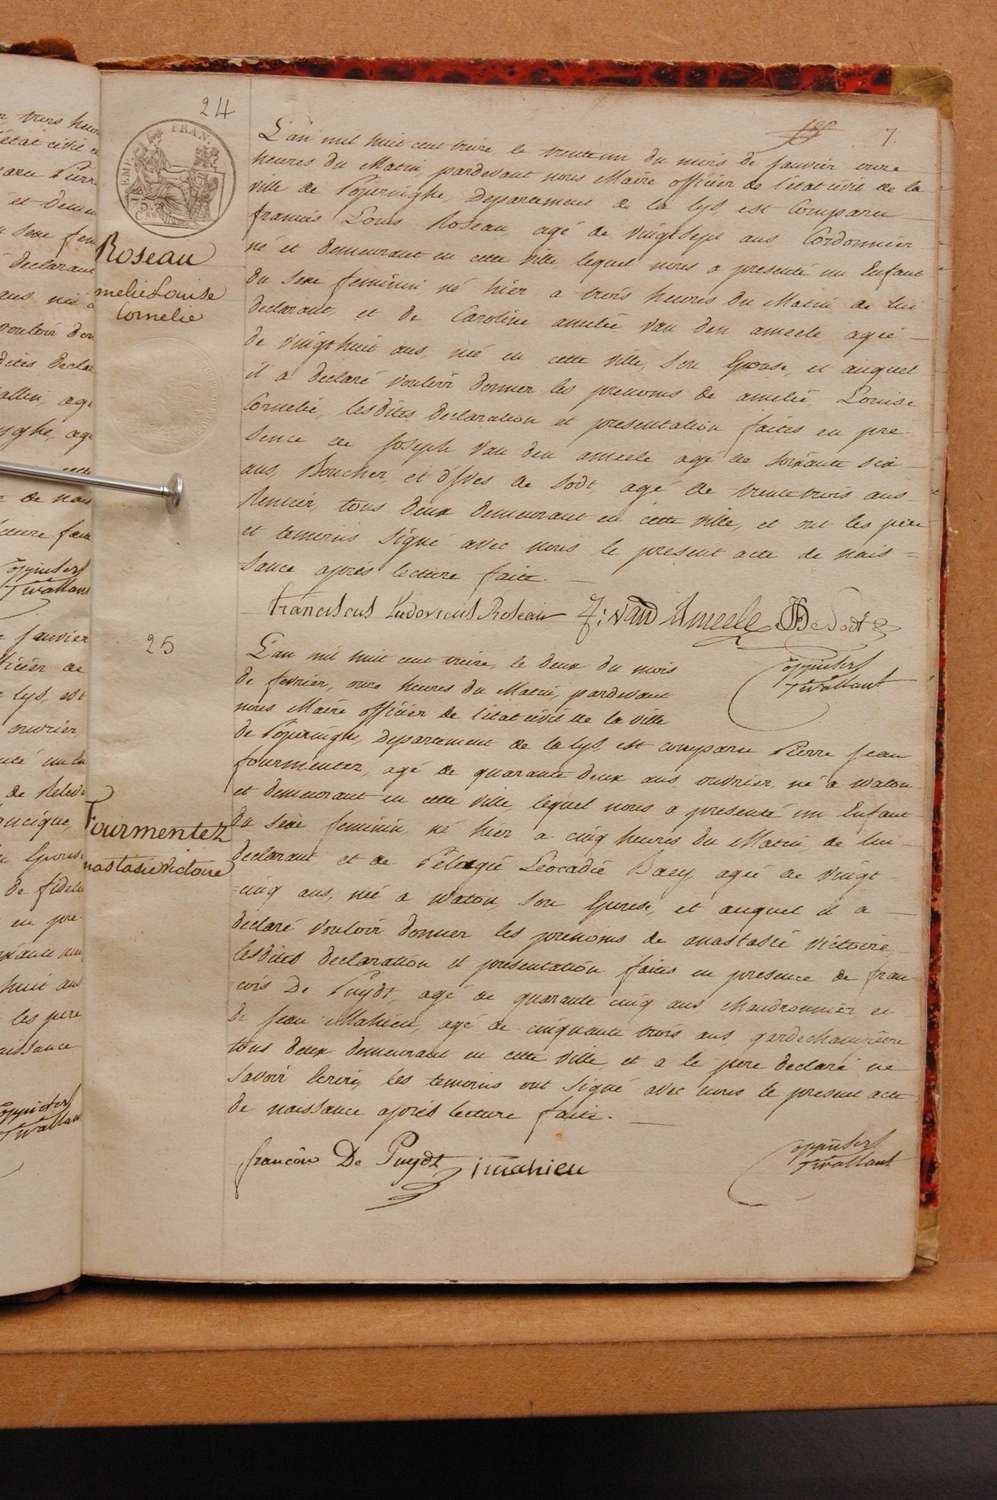 24
7.
EMP. FRAN.
Roseau
melie Louise
Cornelie
L'an mil huit cent treize, le trente un du mois de Janvier onze
heures du Matin pardevant nous Maire officier de l'état civil de la
ville de Poperinghe, Departement de la Lys, est Comparu
francois Louis Roseau agé de vingt sept ans Cordonnier
né et demeurant en cette ville lequel nous a presenté un Enfant
du sexe feminin né hier a trois heures du Matin de lui
declarant, et de Caroline amelie Van den ameele agée
de vingt huit ans, née en cette ville, son Epouse, et auquel
il a declaré vouloir donner les prenoms de amelie Louise
Cornelie, lesdites declaration et presentation faites en pre
sence de Joseph Van den ameele agé de soixante six
ans, Boucher, et d'Yves de Sodt, agé de trente trois ans
Rentier, tous deux demeurant en cette ville, et ont les père
et temoins signé avec nous le present acte de nais=
sance après lecture faite.
franciscus Ludovicus Roseau J: vand Ameele De Sodt
25
Fourmentez
nastasie Victoire
L'an mil huit cent treize, le deux du mois
de fevrier, onze heures du Matin, pardevant
nous Maire officier de l'état civil de la ville
de Poperinghe, Departement de la Lys, est comparu Pierre Jean
fourmentez, agé de quarante deux ans ouvrier, né a watou
et demeurant en cette ville lequel nous a presenté un Enfant
du sexe feminin, né hier a cinq heures du Matin de lui
declarant et de Pelagie Leocadie Baey agée de vingt
=cinq ans, née a watou, son Epouse, et auquel il a
declaré vouloir donner les prenoms de anastasie victoire
lesdites declaration et presentation faites en presence de fran
cois De Puydt, agé de quarante cinq ans chaudronnier et
de Jean Mahieu, agé de cinquante trois ans, garde champêtre
tous deux demeurant en cette ville et a le pere declaré ne
savoir Ecrire, les temoins ont signé avec nous le present acte
de naissance après lecture faite.
francois De Puydt j mahieu